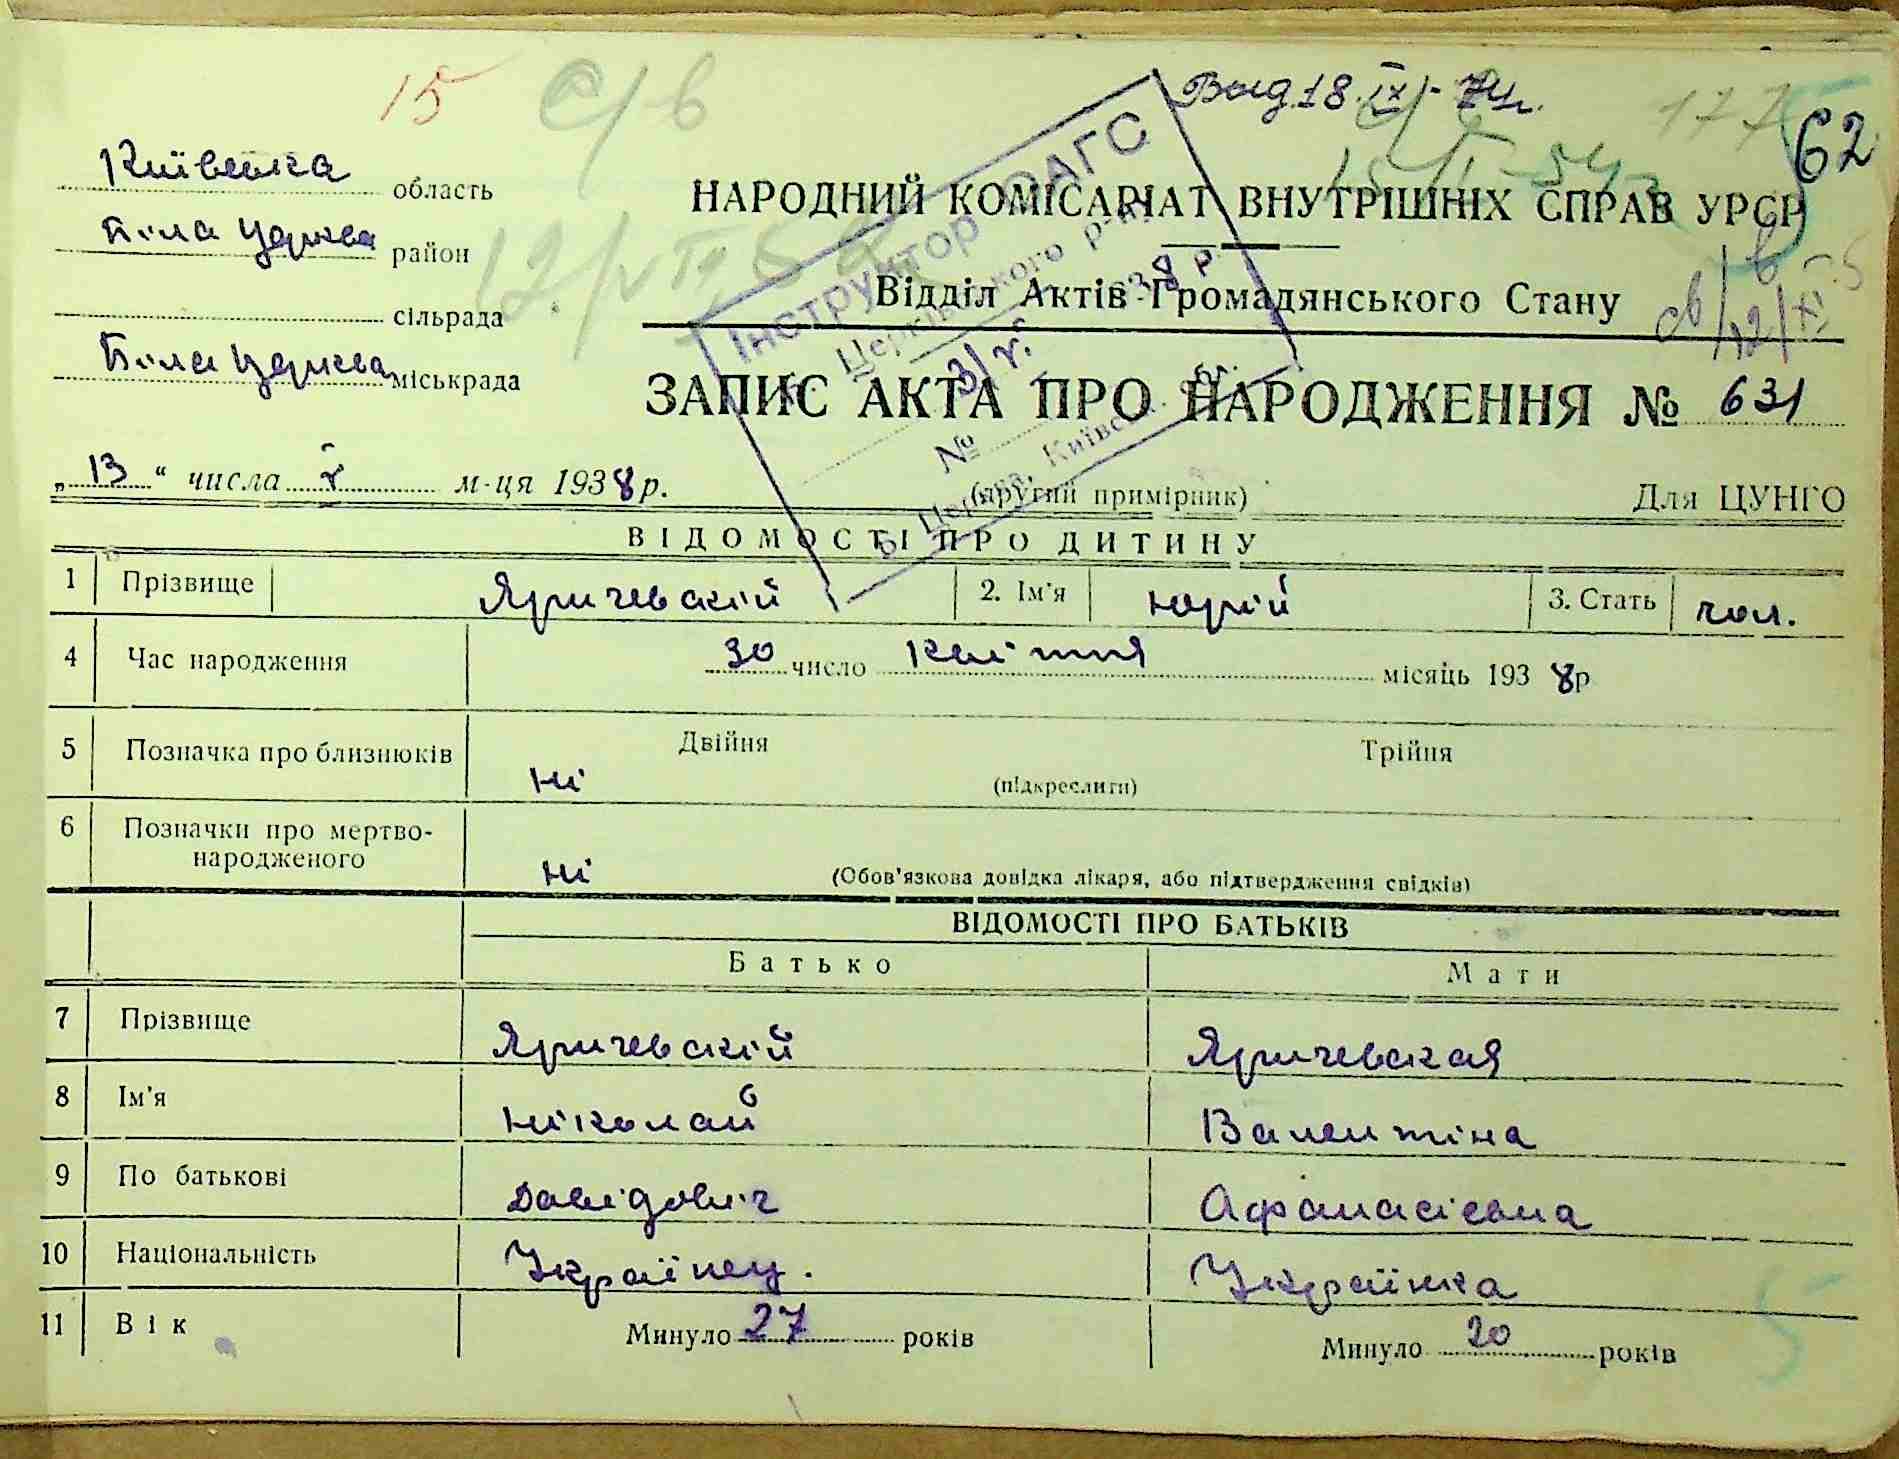 15 с/в Выд. 18.IX-74г. 177 62
Київська область
Біла Церква район
сільрада
Біла Церква міськрада
НАРОДНИЙ КОМІСАРІАТ ВНУТРІШНІХ СПРАВ УРСР
Відділ Актів Громадянського Стану
Інструктор РАГС
Церківського р-ну
3/V 1938 р.
№
Б. Церква, Київськ. обл.
ЗАПИС АКТА ПРО НАРОДЖЕННЯ № 631
„13“ числа V м-ця 1938 р. (другий примірник) Для ЦУНГО
ВІДОМОСТІ ПРО ДИТИНУ
1 Прізвище Яричевскій 2. Ім'я Юрій 3. Стать чол.
4 Час народження 30 число Квітня місяць 1938 р
5 Позначка про близнюків Ні Двійня Трійня
(підкреслити)
6 Позначки про мертво-
народженого Ні (Обов'язкова довідка лікаря, або підтвердження свідків)
ВІДОМОСТІ ПРО БАТЬКІВ
Батько Мати
7 Прізвище Яричевскій Яричевская
8 Ім'я Ніколай Валентіна
9 По батькові Давідовіч Афанасієвна
10 Національність Українец. Українка
11 Вік Минуло 27 років Минуло 20 років